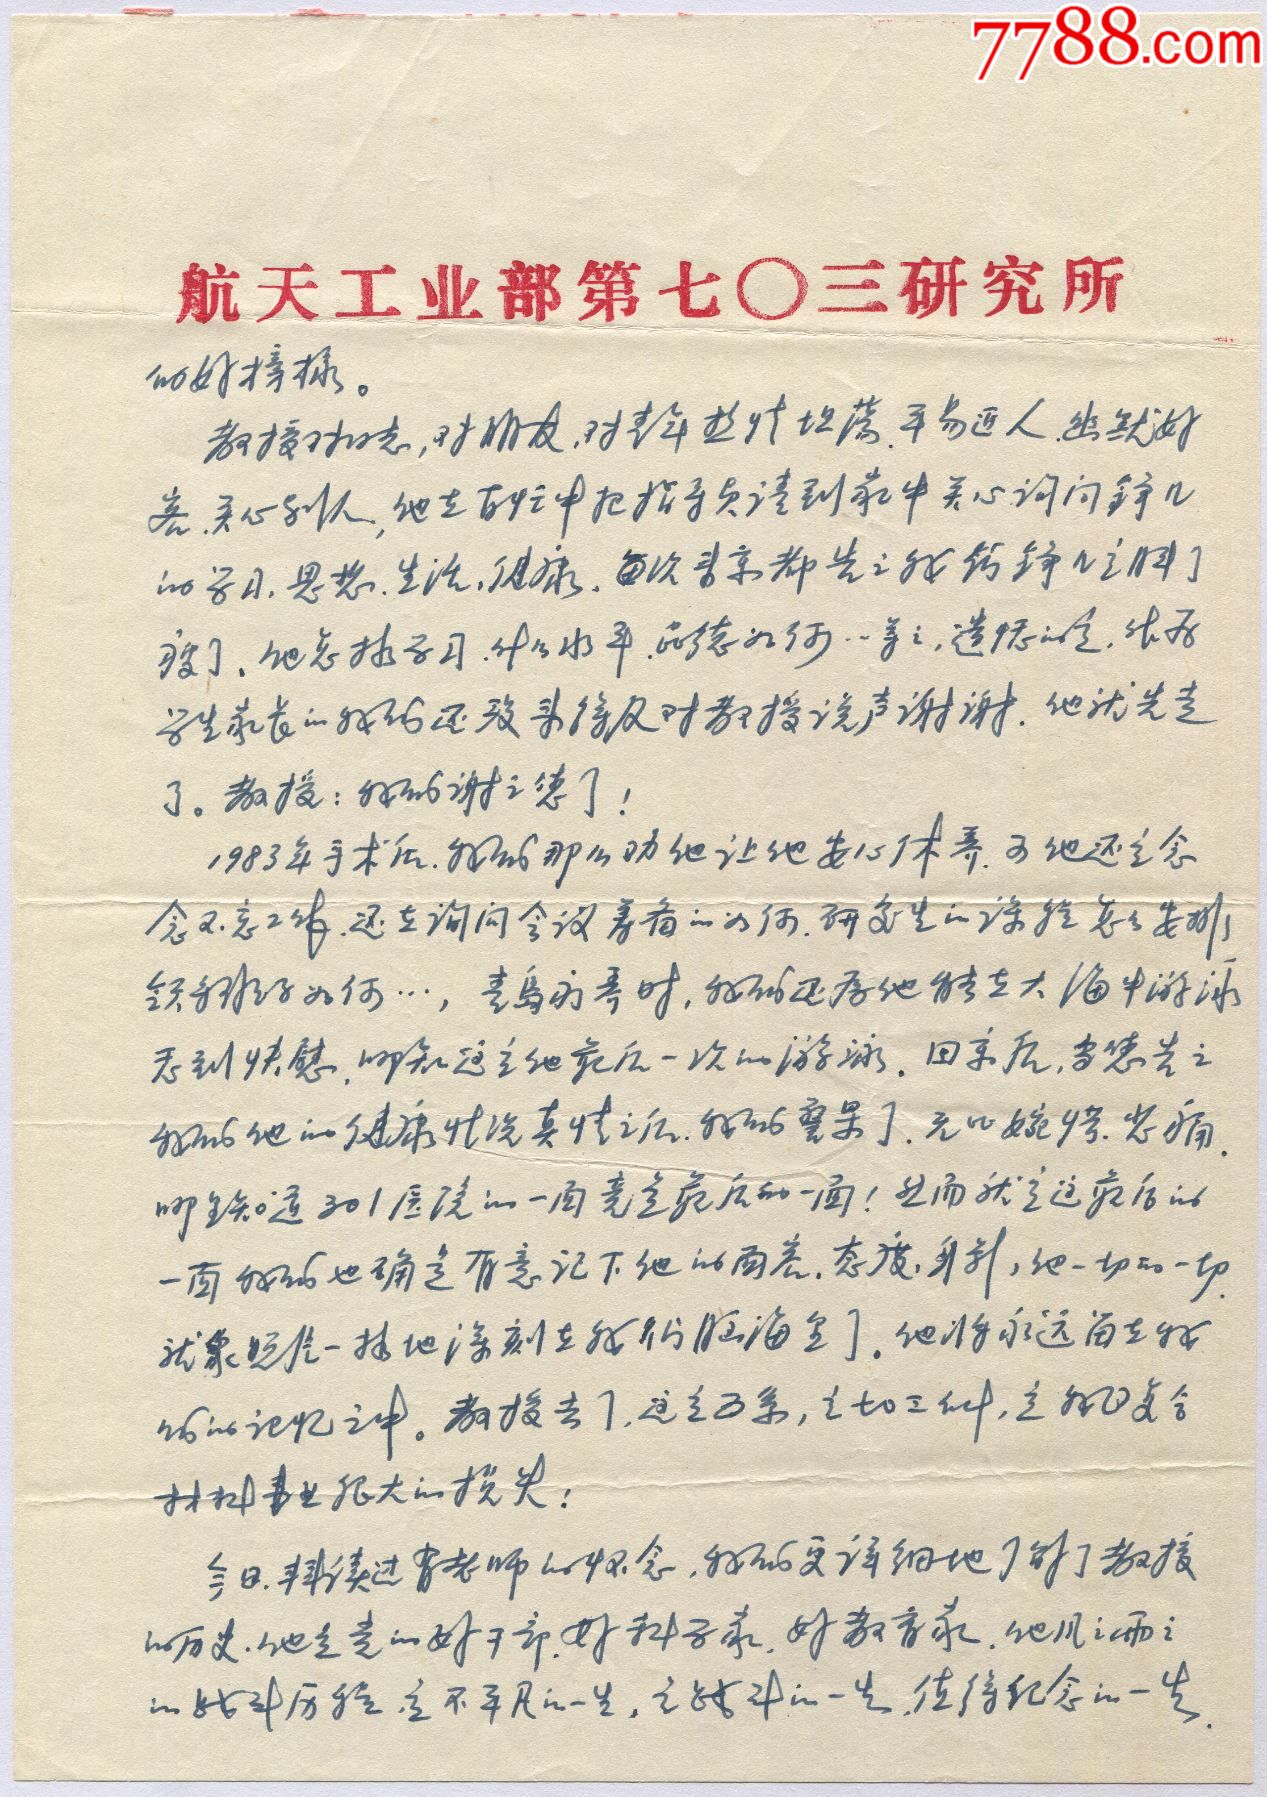 7788.com
航天工业部第七〇三研究所
的好榜样。
教授对同志,对朋友,对青年热情坦荡、平易近人、幽默好
客、关心别人,他在百忙中把指导员请到家中关心询问铮儿
的学习、思想、生活、健康。每次来京都告之我们铮儿是胖了
瘦了、他怎样学习、什么水平、品德如何…等等,遗憾的是,作为
学生家长的我们还没来得及对教授说声谢谢,他就先走
了。教授:我们谢谢您了!
1983年手术后、我们那么劝他让他安心休养、可他还是念
念不忘工作、还在询问会议筹备的如何、研究生的课程怎么安排、
领导班子如何…,青岛疗养时,我们还为他能在大海中游泳
感到快慰,哪知这是他最后一次的游泳。回京后,当您告之
我们他的健康状况真情之后、我们惊呆了、无比惋惜、悲痛。
哪知道301医院的一面竟是最后的一面!然而就是这最后的
一面我们也确是有意记下他的面容、态度、身影,他一切的一切。
就象照片一样地深刻在我们脑海里了。他将永远留在我
们的记忆之中。教授去了,这是五系,是七〇三
材料事业很大的损失!
今日,拜读过曹老师的怀念,我们更详细地了解了教授
的历史、他是党的好干部、好科学家、好教育家、他风风雨雨
的战斗历程、是不平凡的一生,是战斗的一生、值得纪念的一生。